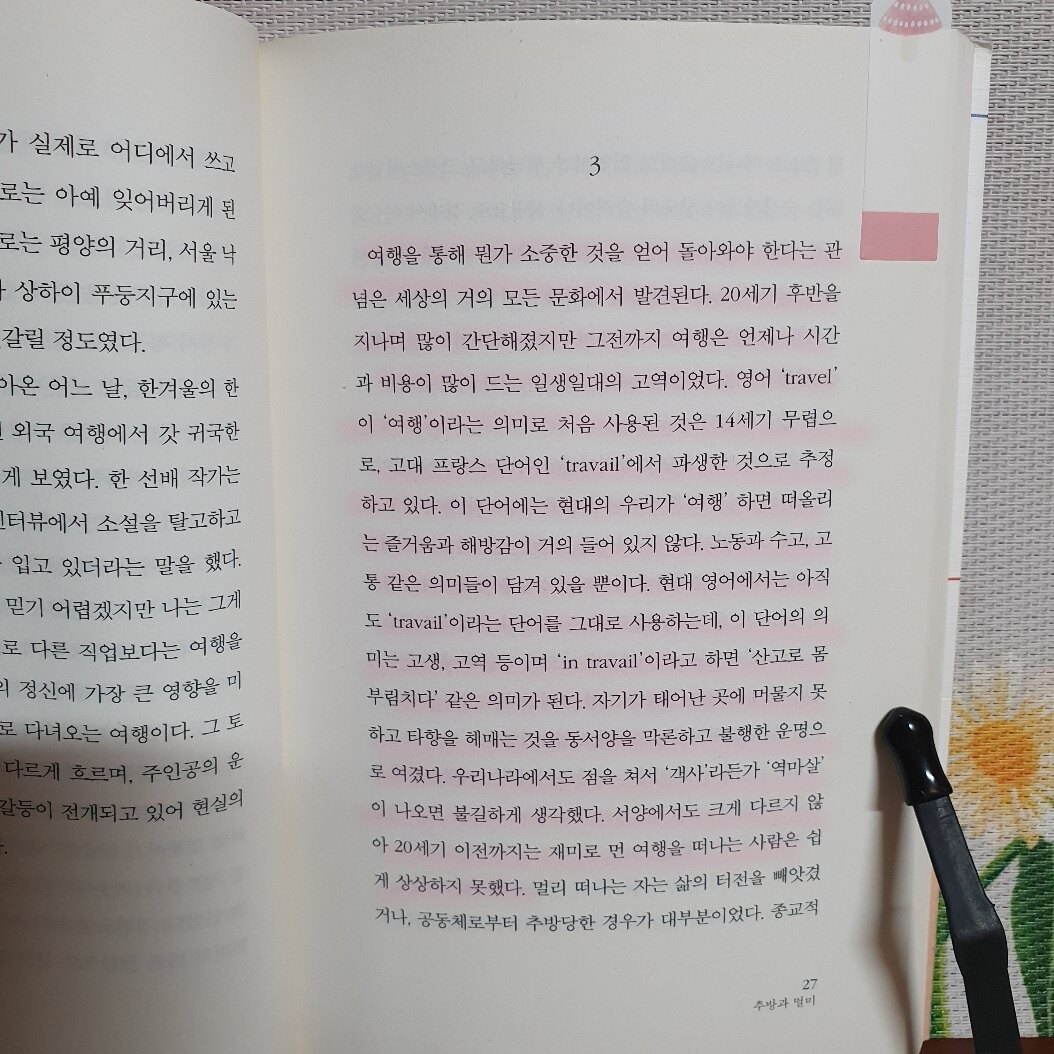 가 실제로 어디에서 쓰고
로는 아예 잊어버리게 된
로는 평양의 거리, 서울 낙
상하이 푸둥지구에 있는
갈릴 정도였다.
아온 어느 날, 한겨울의 한
외국 여행에서 갓 귀국한
게 보였다. 한 선배 작가는
인터뷰에서 소설을 탈고하고
입고 있더라는 말을 했다.
믿기 어렵겠지만 나는 그게
로 다른 직업보다는 여행을
의 정신에 가장 큰 영향을 미
로 다녀오는 여행이다. 그 토
다르게 흐르며, 주인공의 운
갈등이 전개되고 있어 현실의
3
여행을 통해 뭔가 소중한 것을 얻어 돌아와야 한다는 관
념은 세상의 거의 모든 문화에서 발견된다. 20세기 후반을
지나며 많이 간단해졌지만 그전까지 여행은 언제나 시간
과 비용이 많이 드는 일생일대의 고역이었다. 영어 ‘travel’
이 ‘여행’이라는 의미로 처음 사용된 것은 14세기 무렵으
로, 고대 프랑스 단어인 ‘travail’에서 파생한 것으로 추정
하고 있다. 이 단어에는 현대의 우리가 ‘여행’ 하면 떠올리
는 즐거움과 해방감이 거의 들어 있지 않다. 노동과 수고, 고
통 같은 의미들이 담겨 있을 뿐이다. 현대 영어에서는 아직
도 ‘travail’이라는 단어를 그대로 사용하는데, 이 단어의 의
미는 고생, 고역 등이며 ‘in travail’이라고 하면 ‘산고로 몸
부림치다’ 같은 의미가 된다. 자기가 태어난 곳에 머물지 못
하고 타향을 헤매는 것을 동서양을 막론하고 불행한 운명으
로 여겼다. 우리나라에서도 점을 쳐서 ‘객사’라든가 ‘역마살’
이 나오면 불길하게 생각했다. 서양에서도 크게 다르지 않
아 20세기 이전까지는 재미로 먼 여행을 떠나는 사람은 쉽
게 상상하지 못했다. 멀리 떠나는 자는 삶의 터전을 빼앗겼
거나, 공동체로부터 추방당한 경우가 대부분이었다. 종교적
27
추방과 멀미